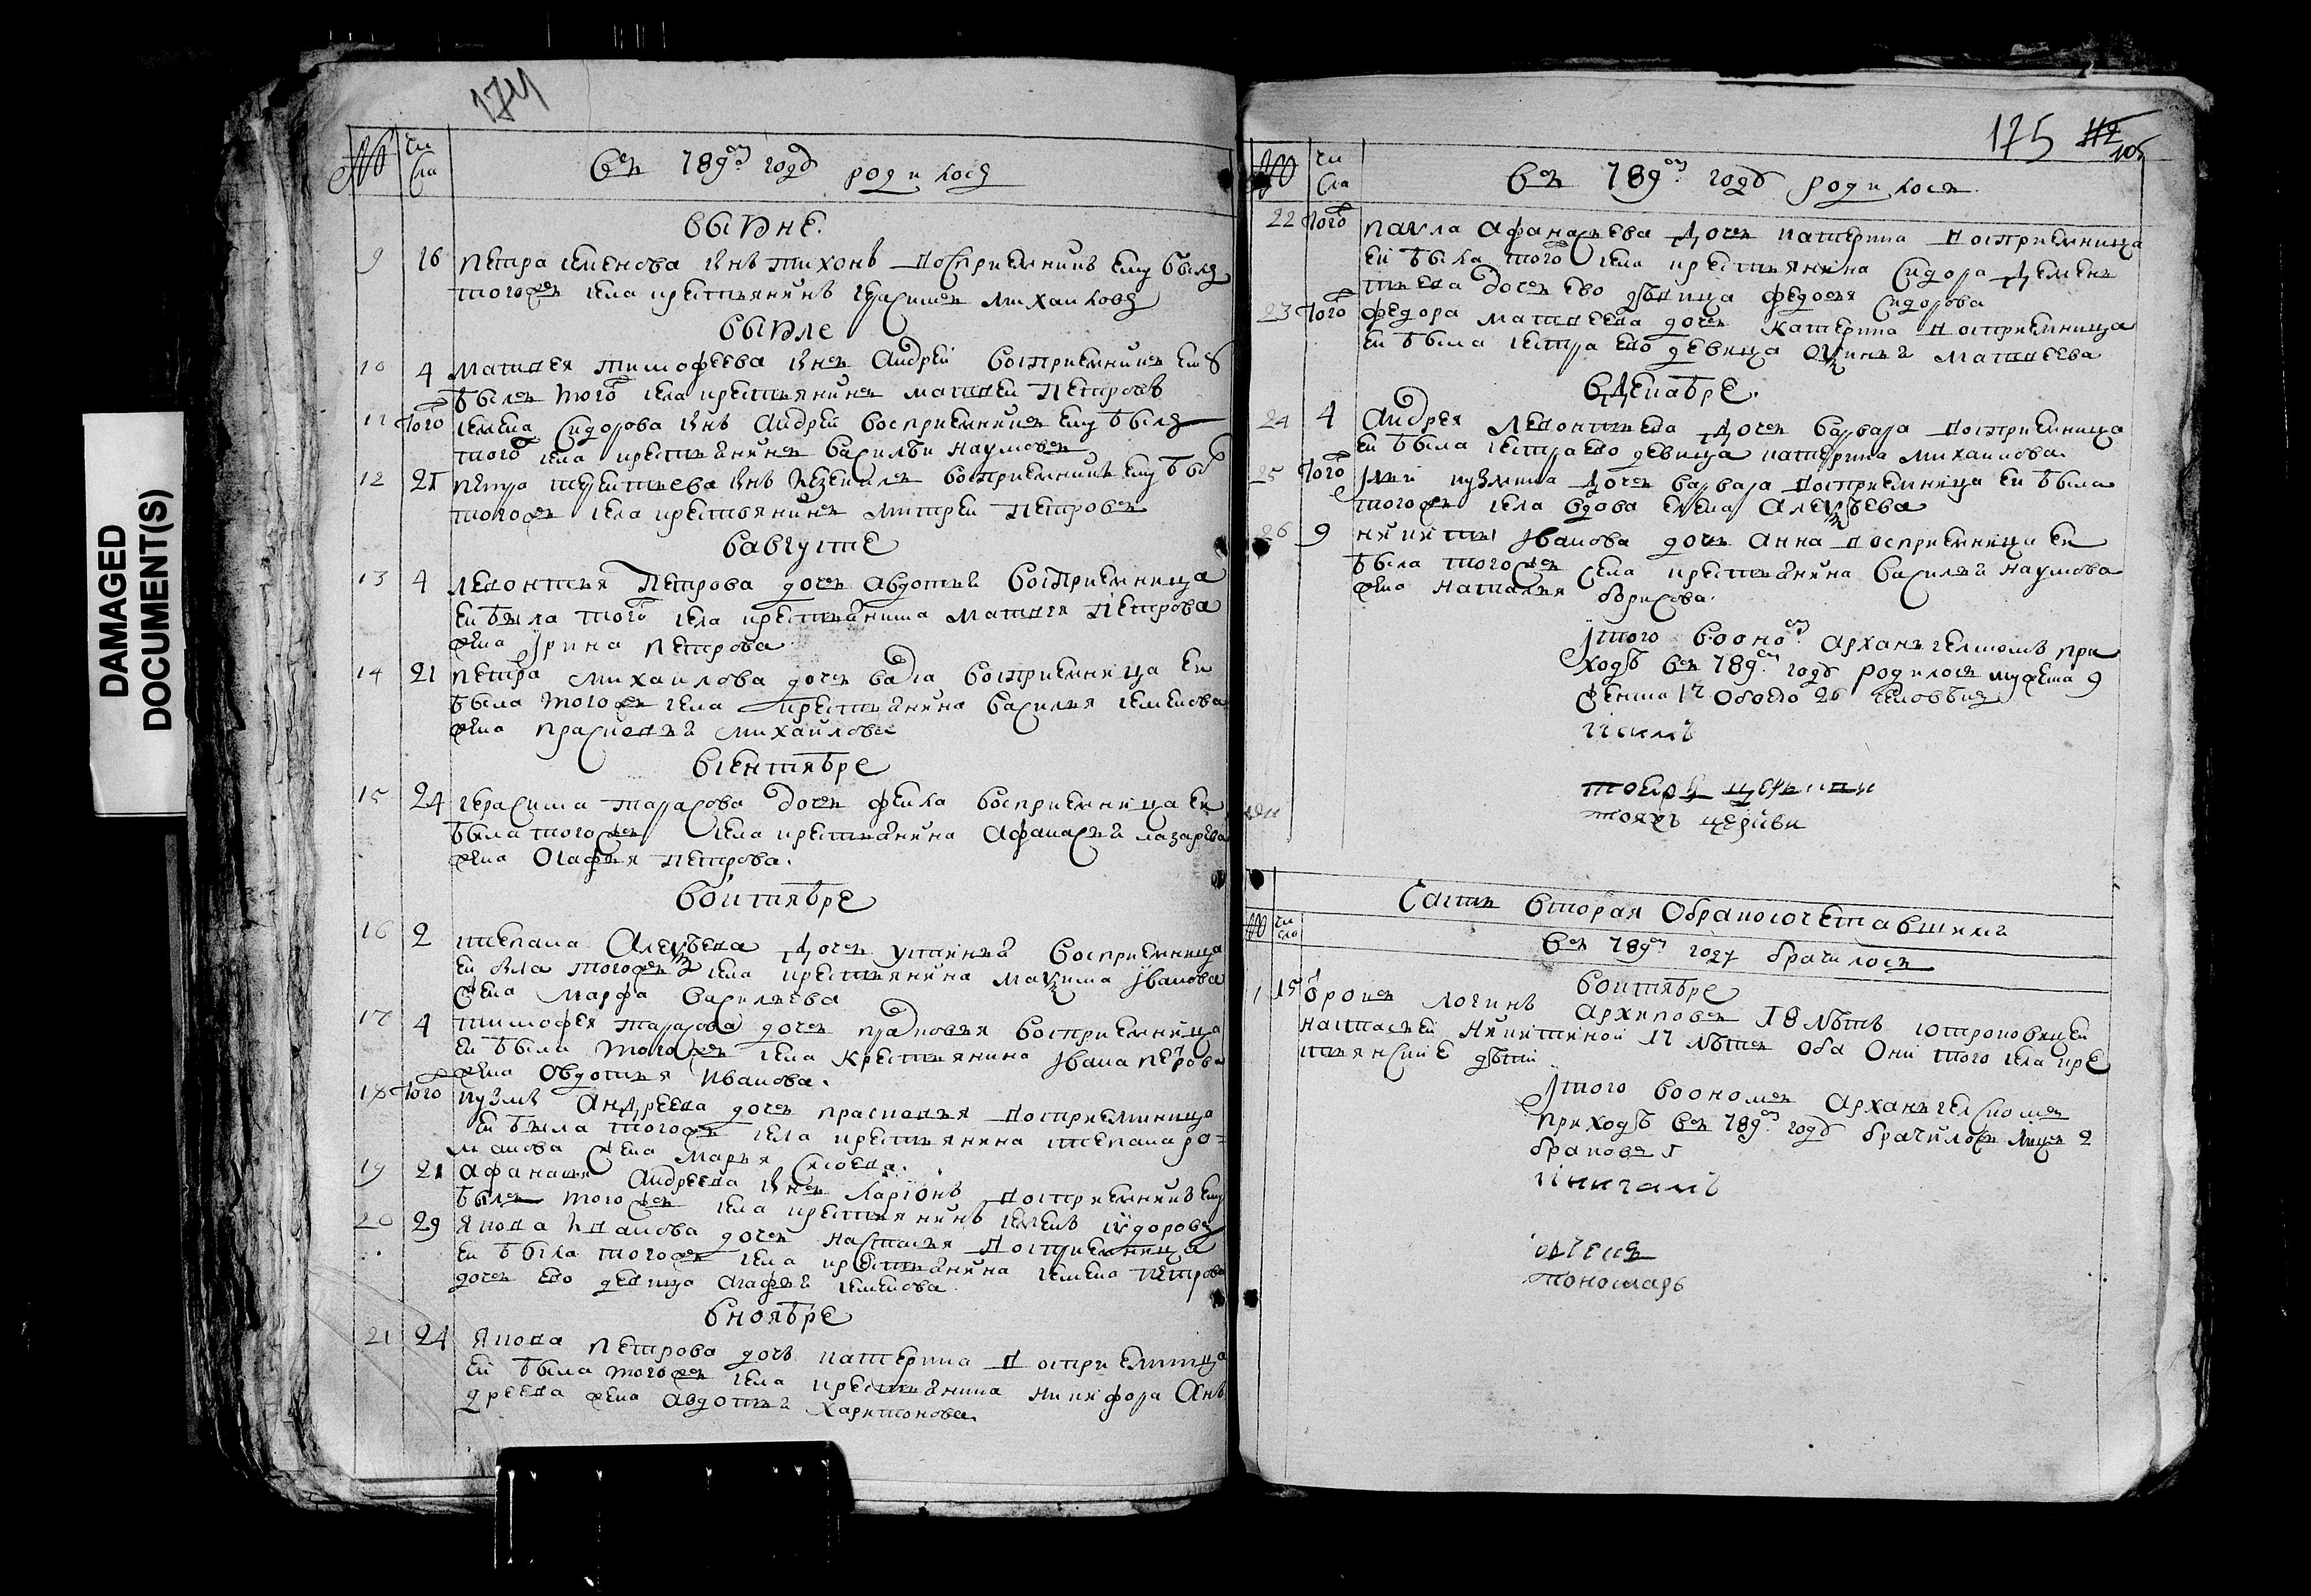 DAMAGED
DOCUMENT(S)
174
№ чи
сла
въ 789м годѣ родилося
въ июне
9 16 Петра Семенова сынъ Тихонъ восприемникъ ему былъ
тогожъ села крестьянинъ Герасимъ Михаиловъ
въ июле
10 4 Матвея Тимофеева сынъ Андрей восприемникъ ему
былъ того села крестьянинъ Матвей Петровъ
11 того Семена Сидорова сынъ Андрей восприемникъ ему былъ
того села крестьянинъ Василей Наумовъ
12 21 Петра сынъ восприемникъ ему бы
тогожъ села крестьянинъ Митрей Петровъ
в августе
13 4 Левонтия Петрова дочь Авдотия восприемница
ей была того села крестьянина Матвея Петрова
жена Ирина Петрова
14 21 Петра Михаилова дочь восприемница ей
была тогожъ села крестьянина Василия Семенова
жена Прасковия Михайлова
в сентябре
15 24 Герасима Тарасова дочь Фекла восприемница ей
была тогожъ села крестьянина Афанасия Лазарева
жена Агафия Петрова.
в октябре
16 2 Степана Алексеева дочь Устиния восприемница
ей была тогожъ села крестьянина Максима Иванова
жена Марфа Васильева
17 4 Тимофея Тарасова дочь Прасковия восприемница
ей была тогожъ села крестьянина Ивана Петрова
жена Овдотия Иванова.
18 того Кузмы Андреева дочь Прасковия восприемница
ей была тогожъ села крестьянина Степана Ро=
манова жена Марья
19 21 Афанасия Андреева сынъ Ларионъ восприемникъ ему
былъ тогожъ села крестьянинъ Семенъ Сидоровъ
20 29 Якова Иванова дочь Настасия восприемница
ей была тогожъ села крестьянина Семена Петрова
дочь ево девица Агафия Семенова
в ноябре
21 24 Якова Петрова дочь Катерина восприемница
ей была тогожъ села крестьянина Никифора Ан
дреева жена Авдотия Харитонова
175 112
105
№ чи
сла
въ 789м годѣ родилося.
22 того Павла Афанасьева дочь Катерина восприемница
ей была того села крестьянина Сидора Демен
тиева дочь ево девица Федосия Сидорова
23 того Федора Матвеева дочь Катерина восприемница
ей была сестра ево девица Аксиния Матвеева
в декабре.
24 4 Андрея Левонтиева дочь Варвара восприемница
ей была сестра ево девица Катерина Михаилова.
25 того Кузмина дочь Варвара восприемница ей была
тогожъ села вдова Елена Алексеева
26 9 Никиты Иванова дочь Анна восприемница ей
была тогожъ села крестьянина Василия Наумова
жена Наталия Борисова.
Итого во оном Архангелском при
ходѣ въ 789м годѣ родилося мужеска 9
женска 17 обоего 26 человѣкъ
тоежъ церкви
Часть вторая о бракосочетавшихся
№ чи
сла
въ 789м году брачилося
в октябре
1 15 отрокъ Логинъ Архиповъ 18 лѣтъ с отроковицей
Настасьей Никитиной 17 лѣтъ оба они того села кре
стьянские дѣти
Итого во ономъ Архангелскомъ
приходѣ въ 789м годѣ брачилося лицъ 2
браковъ 1
пономарь